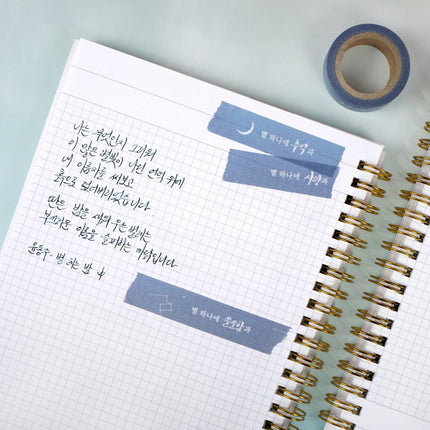 별 하나에 추억과
별 하나에 사랑과
나는 무엇인지 그리워
이 많은 별빛이 나린 언덕 위에
내 이름자를 써보고
흙으로 덮어버리었습니다
딴은 밤을 새워 우는 벌레는
부끄러운 이름을 슬퍼하는 까닭입니다
윤동주 - 별 헤는 밤
별 하나에 쓸쓸함과